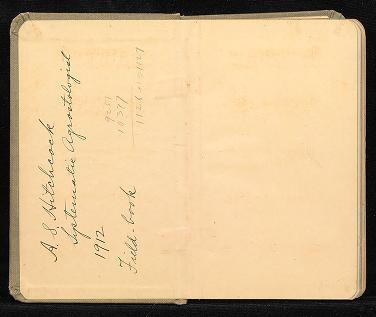 A. S. Hitchcock
Systematic Agrostologist
1912
Field-book
9251
10377